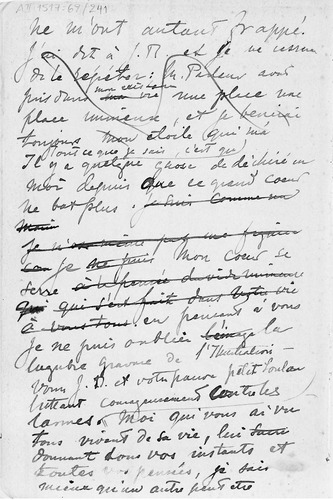 AM 1517-64/241
ne m'ont autant frappé.
J'ai dit à J.B. et je ne cesserai
de le répéter: M. Pasteur avait
pris dans mon existence sa vie une place une
place immense, et je bénirai
toujours mon étoile qui m'a
Tout ce que je sais, c'est que
Il y a quelque chose de déchiré en
moi depuis que ce grand coeur
ne bat plus. je suis comme un
je n'
je ne puis Mon coeur se
serre à la pensée du vide immense
qui s'est fait dans votre vie
à vous tous. en pensant à vous
je ne puis oublier la
lugubre gravure de l'Illustration
Vous J.B. et votre pauvre petit
luttant courageusement contre les
larmes. Moi qui vous ai vu
tous vivant de sa vie, lui
donnant tous vos instants et
toutes vos pensées, je sais
mieux qu'un autre peut être